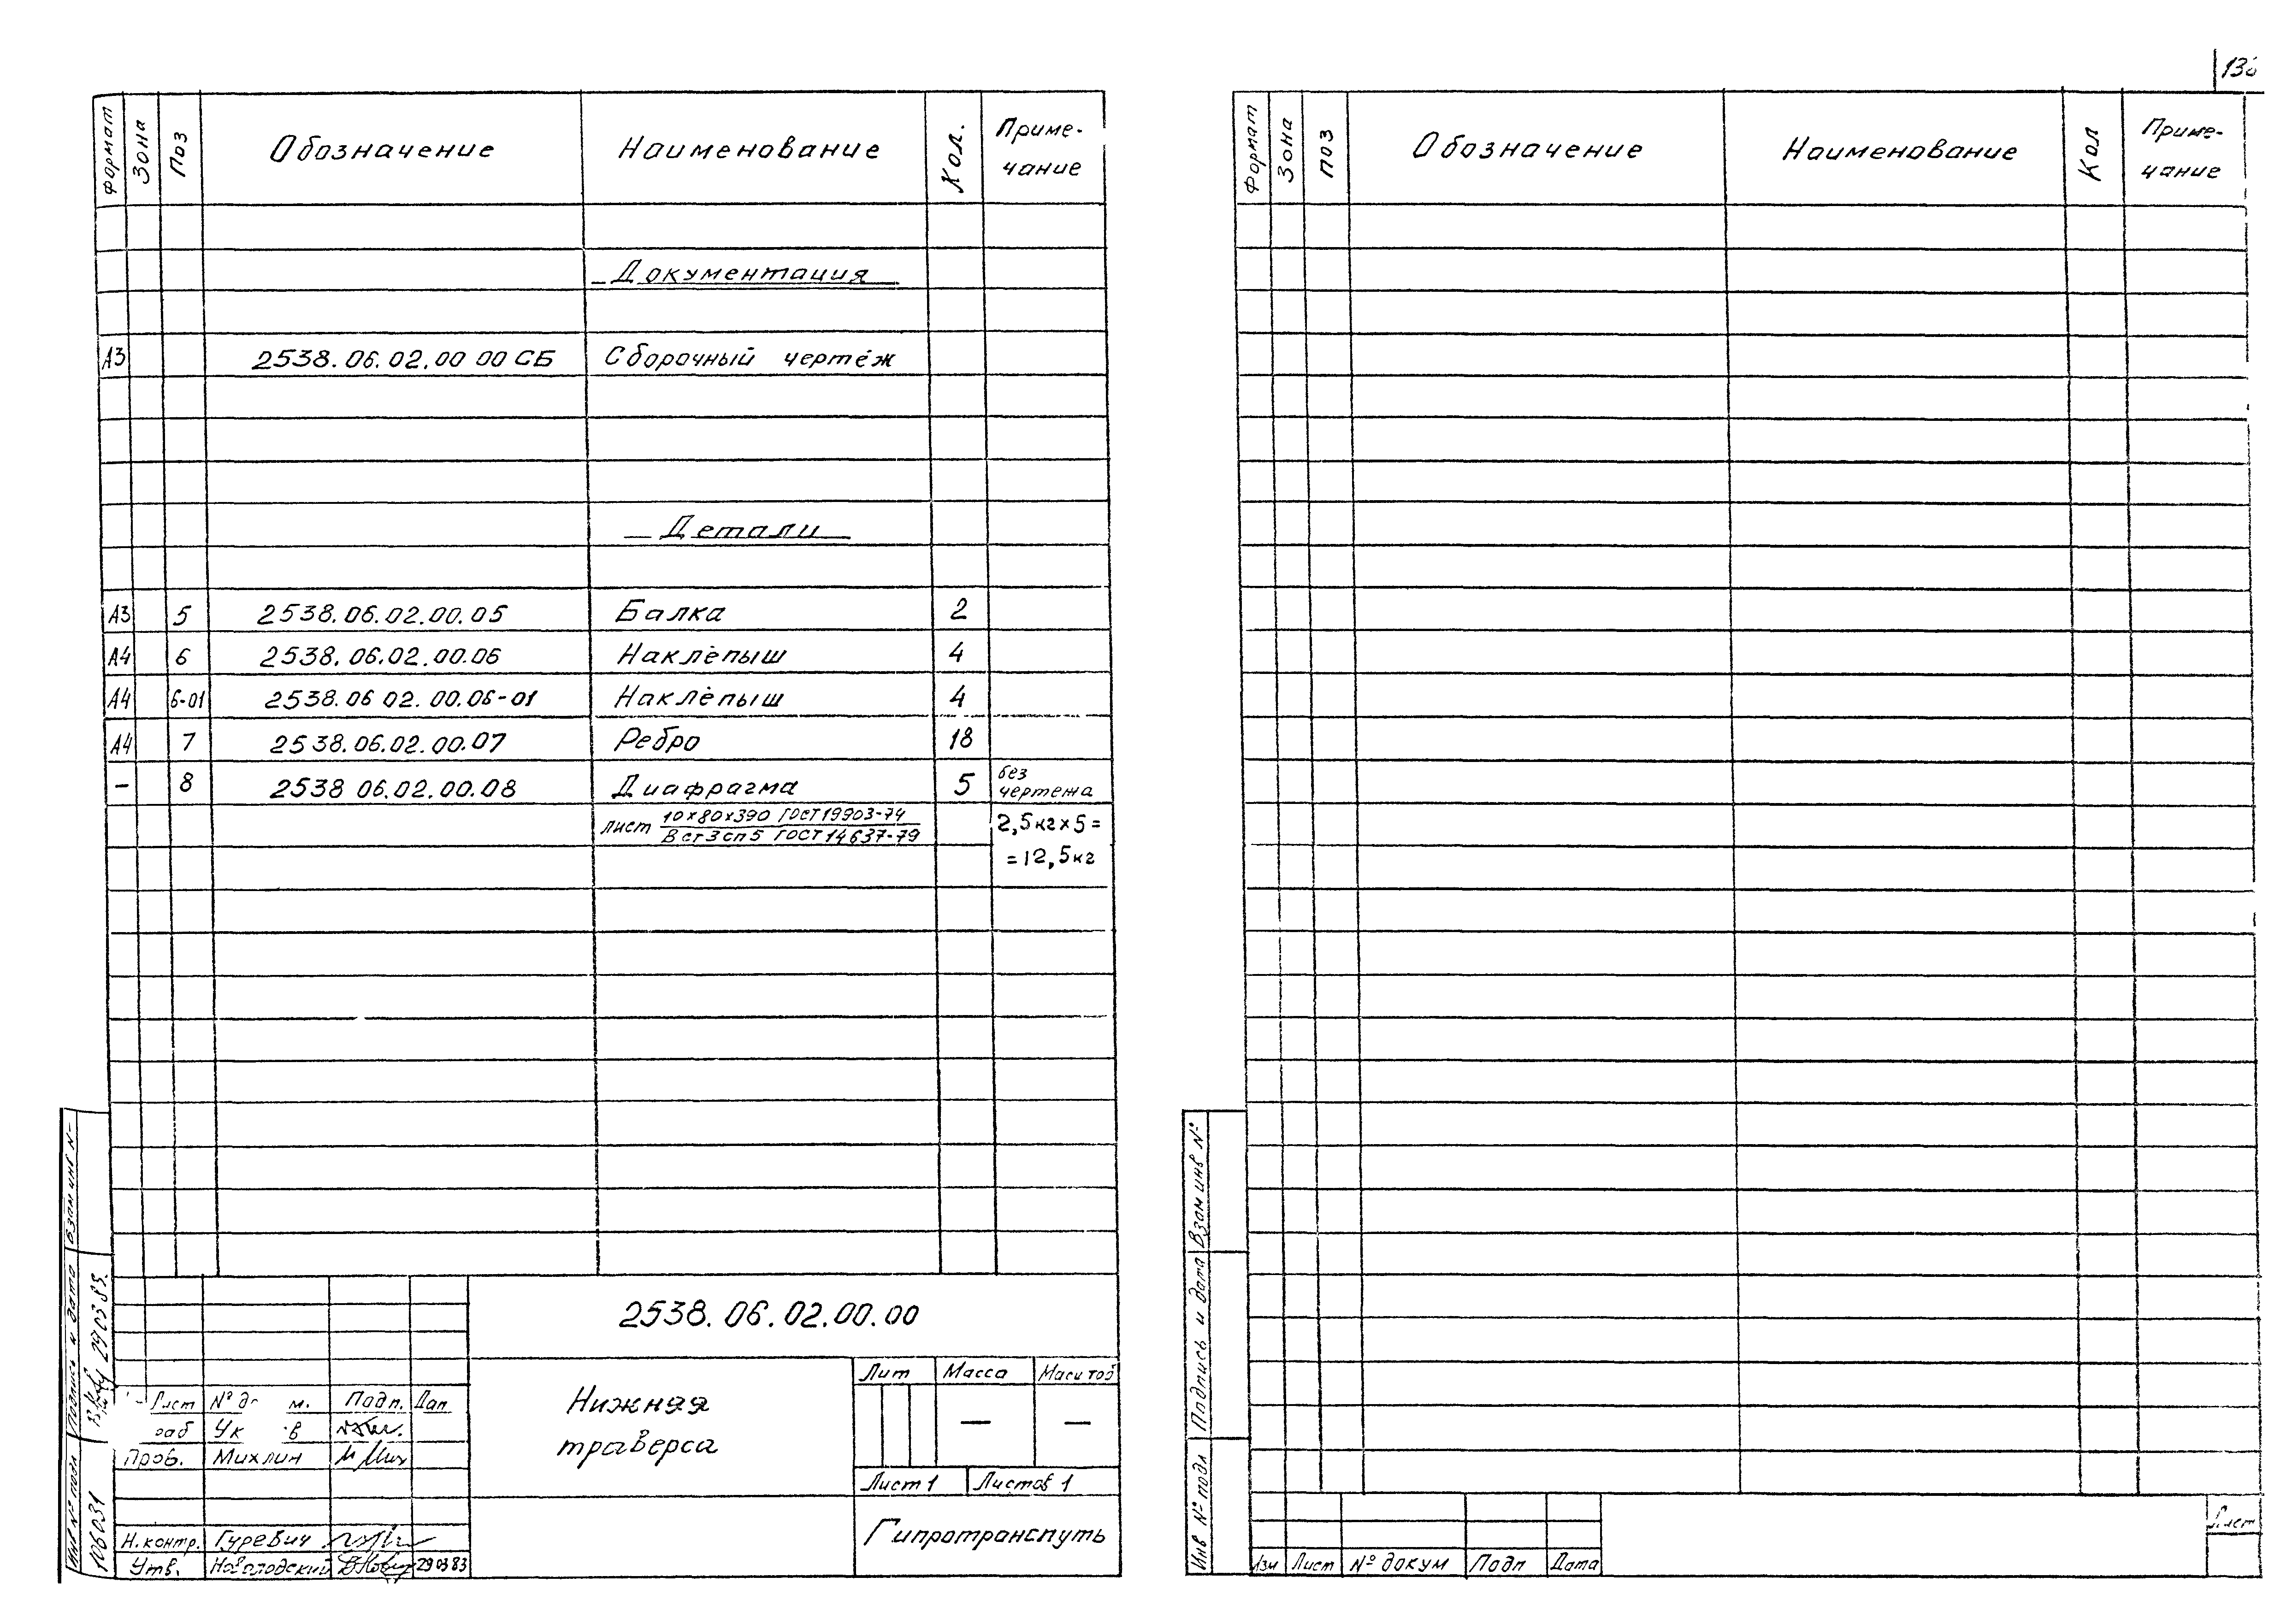 Формат Зона Поз Обозначение Наименование Кол. Приме-
чание
Документация
А3 2538.06.02.00 00 СБ Сборочный чертёж
Детали
А3 5 2538.06.02.00.05 Балка 2
А4 6 2538.06.02.00.06 Наклёпыш 4
А4 6-01 2538.06 02.00.06-01 Наклёпыш 4
А4 7 2538.06.02.00.07 Ребро 18
– 8 2538 06.02.00.08 Диафрагма 5 без
чертежа
лист 10х80х390 ГОСТ 19903-74
В ст3сп5 ГОСТ 14637-79
2,5кг х 5 =
= 12,5кг
2538.06.02.00.00
Нижняя
траверса
Лит Масса
— —
Лист 1 Листов 1
Гипротранспуть
Лист Подп.
Пров. Михлин
Н.контр. Гуревич
Утв. Новогодский 29 03 83
Взам инв
Подпись и дата
Инв № подл
106031
Формат Зона Поз Обозначение Наименование Кол Приме-
чание
Взам инв №
Подпись и дата
Инв № подл
Изм Лист № докум Подп Дата
Лист